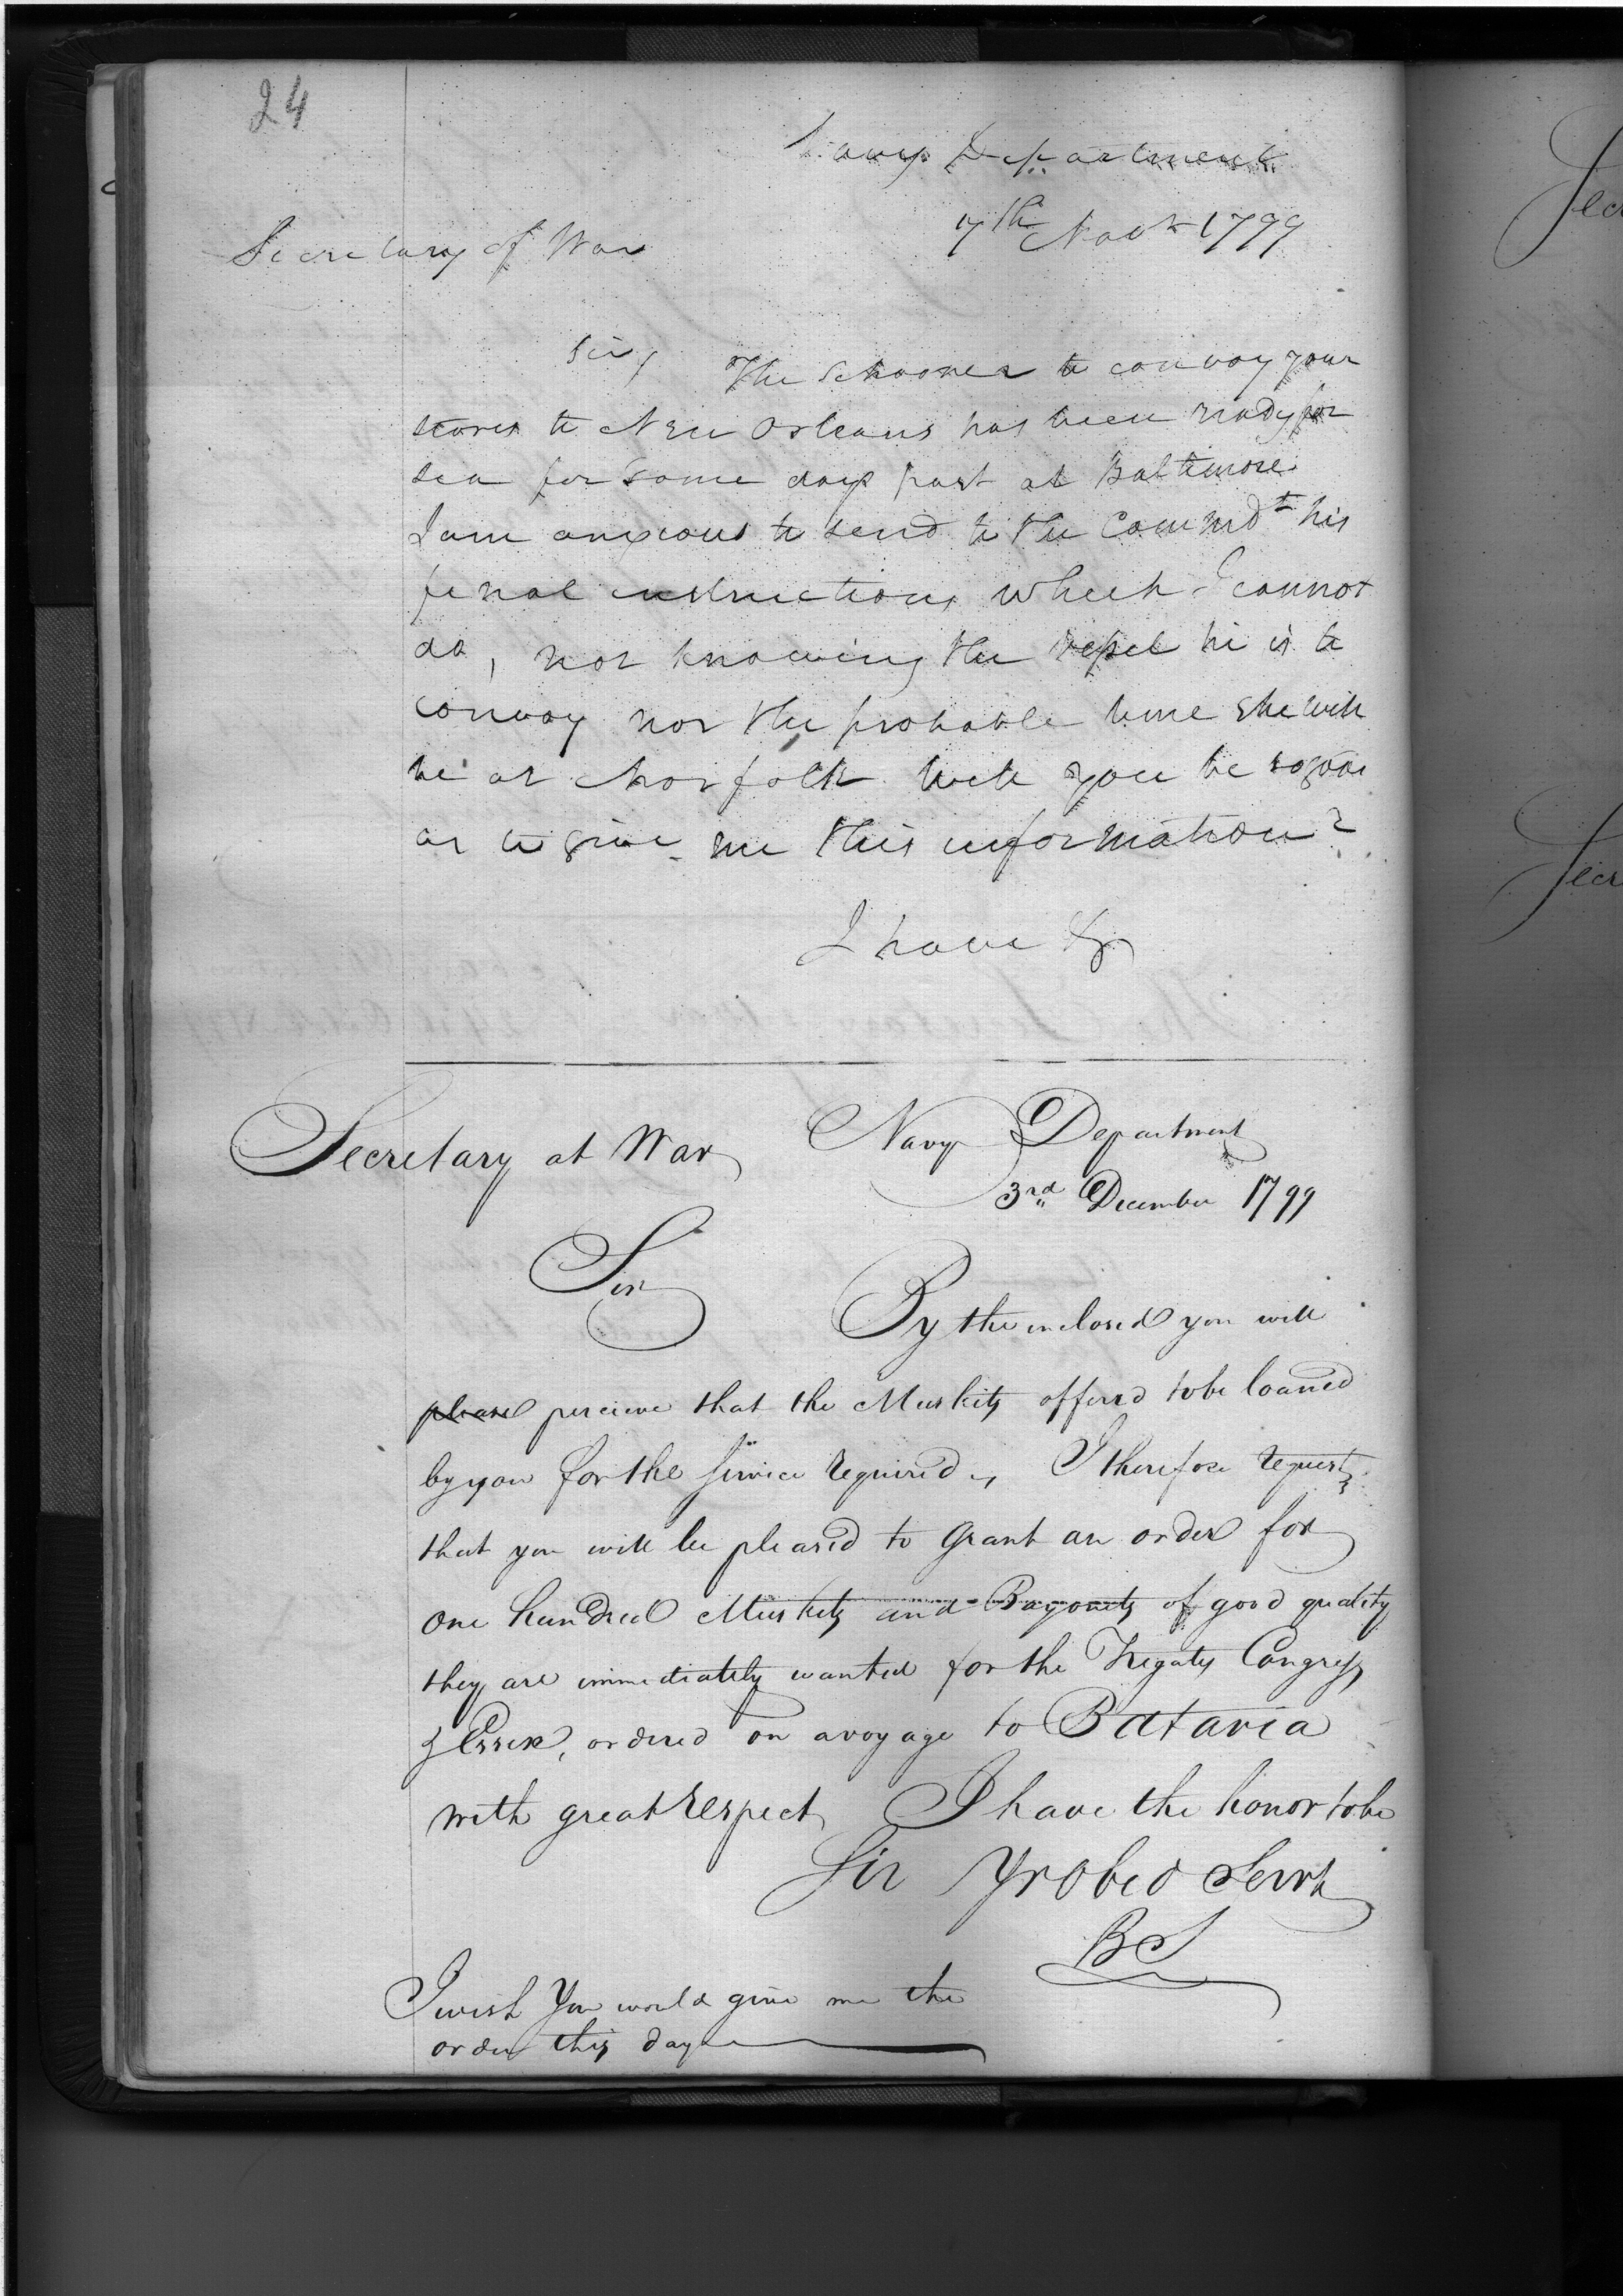 24
Navy Department
7th Novr 1799
Secretary of War
Sir, The Schooner to convoy your
stores to New Orleans has been ready for
sea for some days past at Baltimore.
I am anxious to send to the Commdt his
final instructions which I cannot
do, not knowing the vessel he is to
convoy nor the probable time she will
be at Norfolk will you be so good
as to give me this information?
I have &c
Secretary at War
Navy Department
3rd December 1799
Sir
By the inclosed you will
please percieve that the Muskits offerd to be loaned
by you for the Service required, I therefore request
that you will be pleased to Grant an order for
One hundred Muskets and Bayonets of good quality
they are immediately wanted for the Frigates Congress
& Essex, ordered on a voyage to Batavia
with great respect, I have the honor to be
Sir Yr Obed Servt
BS
I wish You would give me the
order this day
Sec
Secr